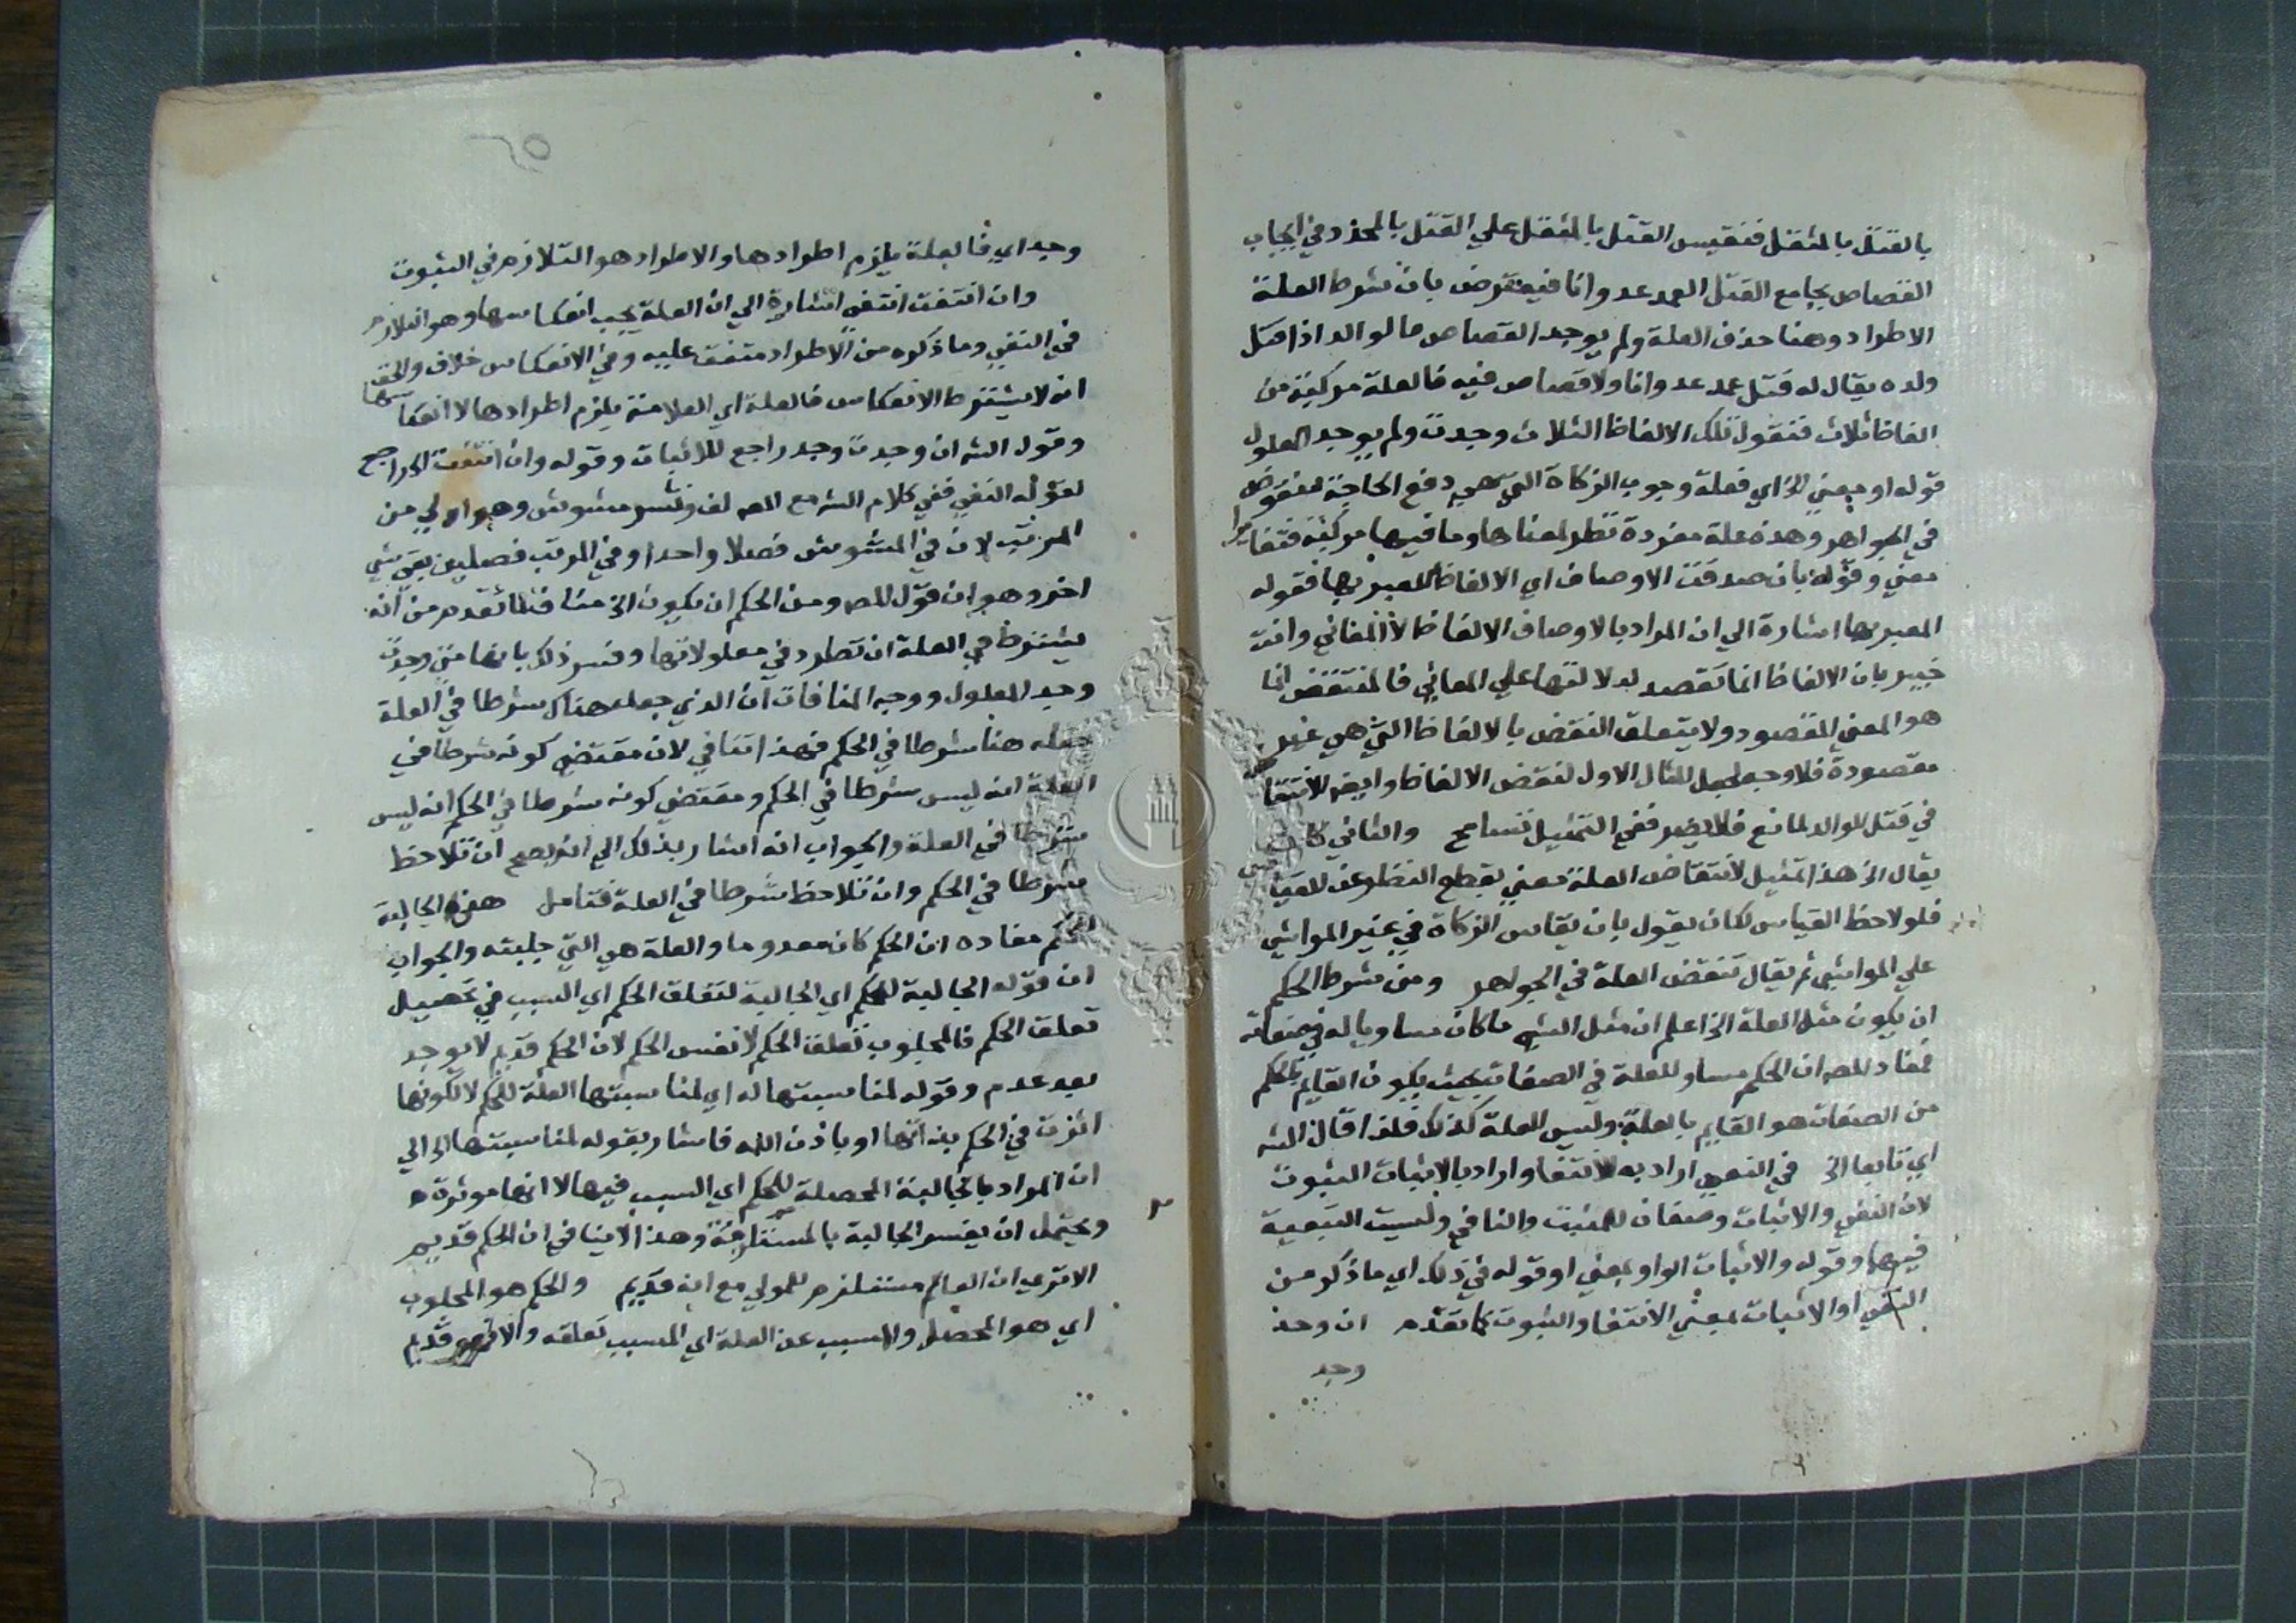 بالقتل بالمثقل فنقيس القتل بالمثقل علي القتل بالمحدد في ايجاب
القصاص بجامع القتل العمد عدوانا فيعترض بان شرط العلة
الاطراد وهنا حذف العلة ولم يوجد القصاص ما لو الوالد اذا قتل
ولده يقال له قتل عمد عدوانا ولا قصاص فيه فالعلة مركبة من
الفاظ ثلاث فنقول تلك الالفاظ الثلاث وجدت ولم يوجد المعلول
قوله او بمعني الخ اي فعلة وجوب الزكاة التي هي دفع الحاجة منقوض
في الجواهر وهذه علة مفردة نظر لمعناها وما فيها مركبة فتغايرا
معني وقوله بان صدقت الاوصاف اي الالفاظ المعبر بها فقوله
المعبر بها اشارة الي ان المراد بالاوصاف الالفاظ لا المعاني وانت
خبير بان الالفاظ انما تقصد لدلالتها علي المعاني فالمنتقض انما
هو المعني المقصود ولا يتعلق النقض بالالفاظ التي هي غير
مقصودة فلا وجه لجعل المثال الاول لنقض الالفاظ وايضا الانتفا
في قتل الوالد لمانع فلا يضر ففي التمثيل تسامح والثاني كان
يقال الخ هذا تمثيل لانتقاض العلة معني بقطع النظر عن القياس
فلو لاحظ القياس لكان يقول بان يقاس الزكاة في غير المواشي
علي المواشي ثم يقال تنقض العلة في الجواهر ومن شرط الحكم
ان يكون مثل العلة الخ اعلم ان مثل الشي ما كان مساويا له في صفاته
فمفاد المص ان الحكم مساو للعلة في الصفات بحيث يكون القايم بالحكم
من الصفات هو القايم بالعلة وليس العلة كذلك فلذا قال الشه
اي تابعا الخ في النفي اراد به الانتفا واراد بالاثبات الثبوت
لان النفي والاثبات وصفان للمثبت والنافي وليست التبعية
فيهما وقوله والاثبات الواو بمعني او وقوله في ذلك اي ما ذكر من
النفي او الاثبات بمعني الانتفا والثبوت كما تقدم ان وحد
وجد
٢٥
وجد اي فالعلة يلزم اطرادها والاطراد هو التلازم في الثبوت
وان انتفت انتفي اشارة الي ان العلة يجب انعكاسها وهو التلازم
في النفي وما ذكره من الاطراد متفق عليه وفي الانعكاس خلاف والحق
انه لا يشترط الانعكاس فالعلة اي العلامة يلزم اطرادها لا انعكاسها
وقول الشه ان وجدت وجد راجع للاثبات وقوله وان انتفت الخ راجع
لقوله النفي ففي كلام الشه مع المص لف ونشر مشوش وهو اولي من
المرتب لان في المشوش فصلا واحدا وفي المرتب فصلين بقي شي
اخر وهو ان قول المص ومن الحكم ان يكون الخ مناف لما تقدم من انه
يشترط في العلة ان تطرد في معلولاتها وفسر ذلك بانها متي وجدت
وجد المعلول ووجه المنافات ان الذي جعله هناك شرطا في العلة
جعله هنا شرطا في الحكم فهذا تنافي لان مقتضي كونه شرطا في
العلة انه ليس شرطا في الحكم ومقتضي كونه شرطا في الحكم انه ليس
شرطا في العلة والجواب انه اشار بذلك الي انه يصح ان تلاحظ
شرطا في الحكم وان تلاحظ شرطا في العلة فتامل هي الجالبة
للحكم مفاده ان الحكم كان معدوما والعلة هي التي جلبته والجواب
ان قوله الجالبة للحكم اي الجالبة لتعلق الحكم اي السبب في تحصيل
تعلق الحكم فالمجلوب تعلق الحكم لا نفس الحكم لان الحكم قديم لا يوجد
بعد عدم وقوله لمناسبتها له اي لمناسبتها العلة للحكم لا لكونها
اثرت في الحكم بذاتها او باذن الله فاشار بقوله لمناسبتها الخ الي
ان المراد بالجالبة المحصلة للحكم اي السبب فيها لا انها موثرة
ويحتمل ان يفسر الجالبة بالمستلزمة وهذا لا ينافي ان الحكم قديم
الا تري ان العالم مستلزم للمولي مع انه قديم والحكم هو المجلوب
اي هو المحصل والمسبب عن العلة اي المسبب تعلقه والا فهو قديم